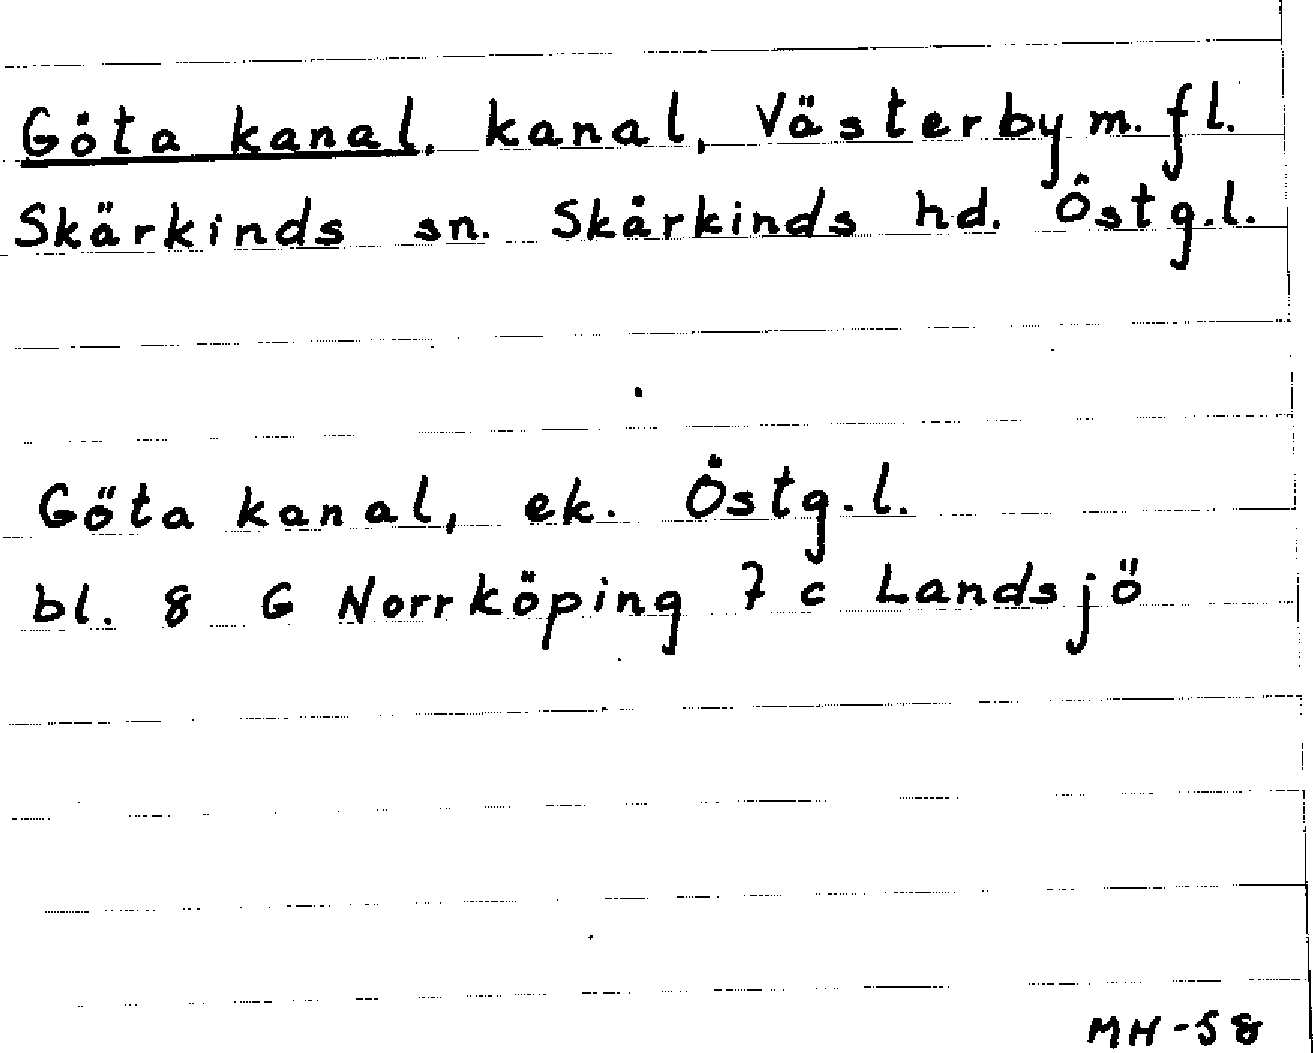 Göta kanal, kanal, Västerby m. fl.
Skärkinds sn. Skärkinds hd. Östg.l.
Göta kanal, ek. Östg.l.
bl. 8 G Norrköping 7 c Landsjö
MH-58